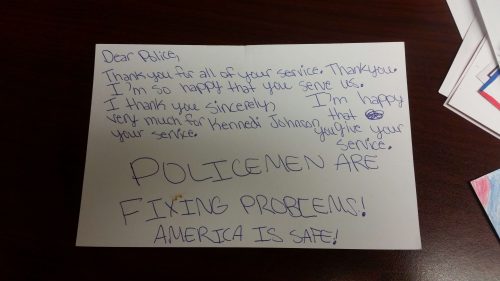 Dear Police,
Thank you for all of your service. Thank you.
I'm so happy that you serve us.
I thank you
very much for
your service.
sincerely,
Kennedi Johnson
I'm happy
that
you give your
service.
POLICEMEN ARE
FIXING PROBLEMS!
AMERICA IS SAFE!